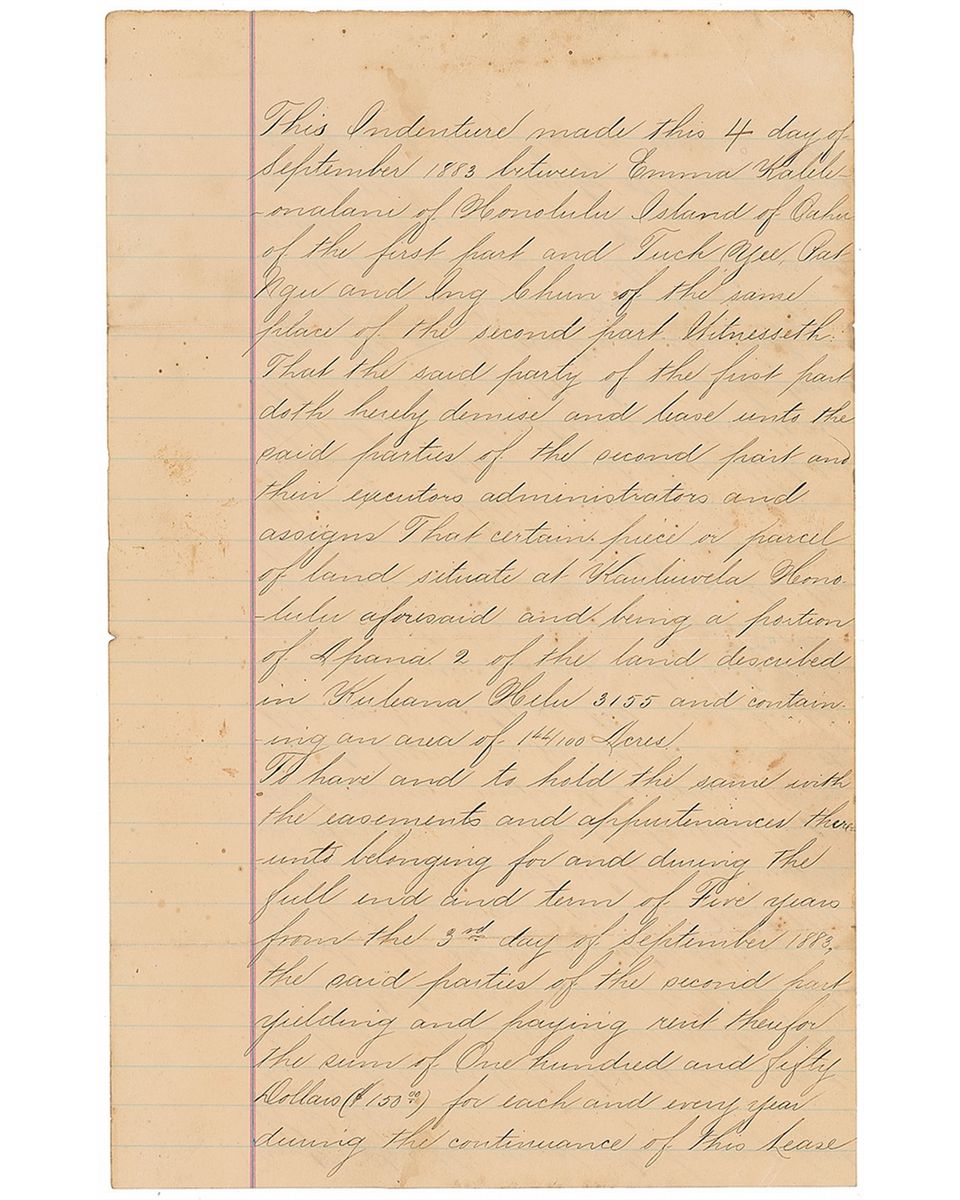 This Indenture made this 4 day of
September 1883 between Emma Kalele-
-onalani of Honolulu Island of Oahu
of the first part and Tuck Yee, Pat
Ngu and Ing Chun of the same
place of the second part Witnesseth.
That the said party of the first part
doth hereby demise and lease unto the
said parties of the second part and
their executors administrators and
assigns That certain piece or parcel
of land situate at Kauluwela Hono-
-lulu aforesaid and being a portion
of Apana 2 of the land described
in Kuleana Helu 3155 and contain-
-ing an area of 1 44/100 Acres.
To have and to hold the same with
the easements and appurtenances there-
-unto belonging for and during the
full end and term of Five years
from the 3rd day of September 1883,
the said parties of the second part
yielding and paying rent therefor
the sum of One hundred and fifty
Dollars ($150 00) for each and every year
during the continuance of this Lease